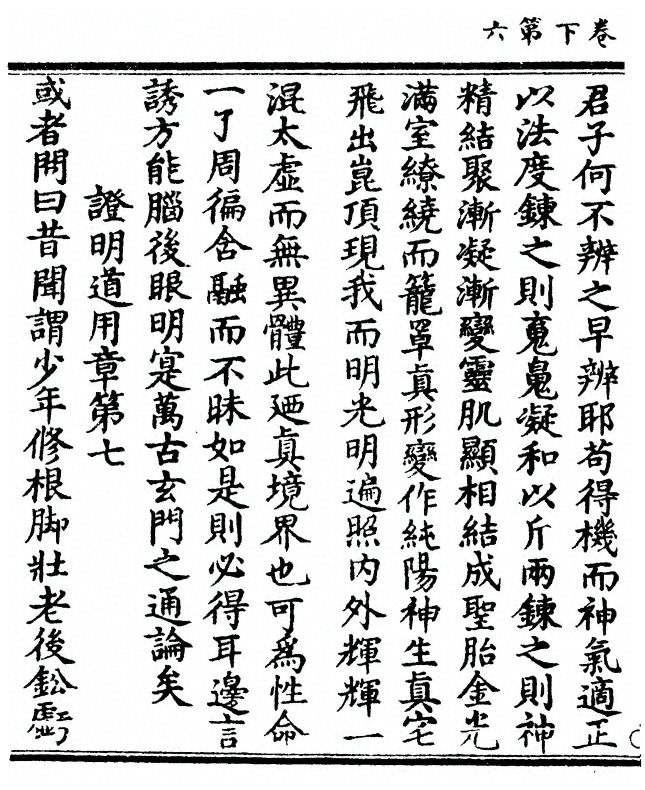 卷下第六
君子何不辨之早辨耶苟得機而神氣適正
以法度鍊之則䰟鬼凝和以斤兩鍊之則神
精結聚漸凝漸變靈肌顯相結成聖胎金光
滿室繚繞而籠罩真形變作純陽神生真宅
飛出崑頂現我而明光明遍照內外輝輝一
混太虛而無異體此廼真境界也可為性命
一了周徧含融而不昧如是則必得耳邊言
誘方能腦後眼明寔萬古玄門之通論矣
證明道用章第七
或者問曰昔聞謂少年修根脚壯老後鈆虧